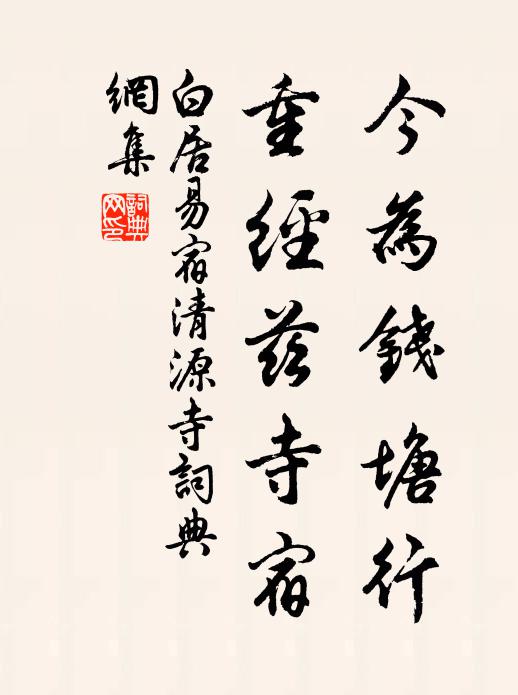 今為錢塘行
重經茲寺宿
白居易宿清源寺詞典
網集
詞典
网印